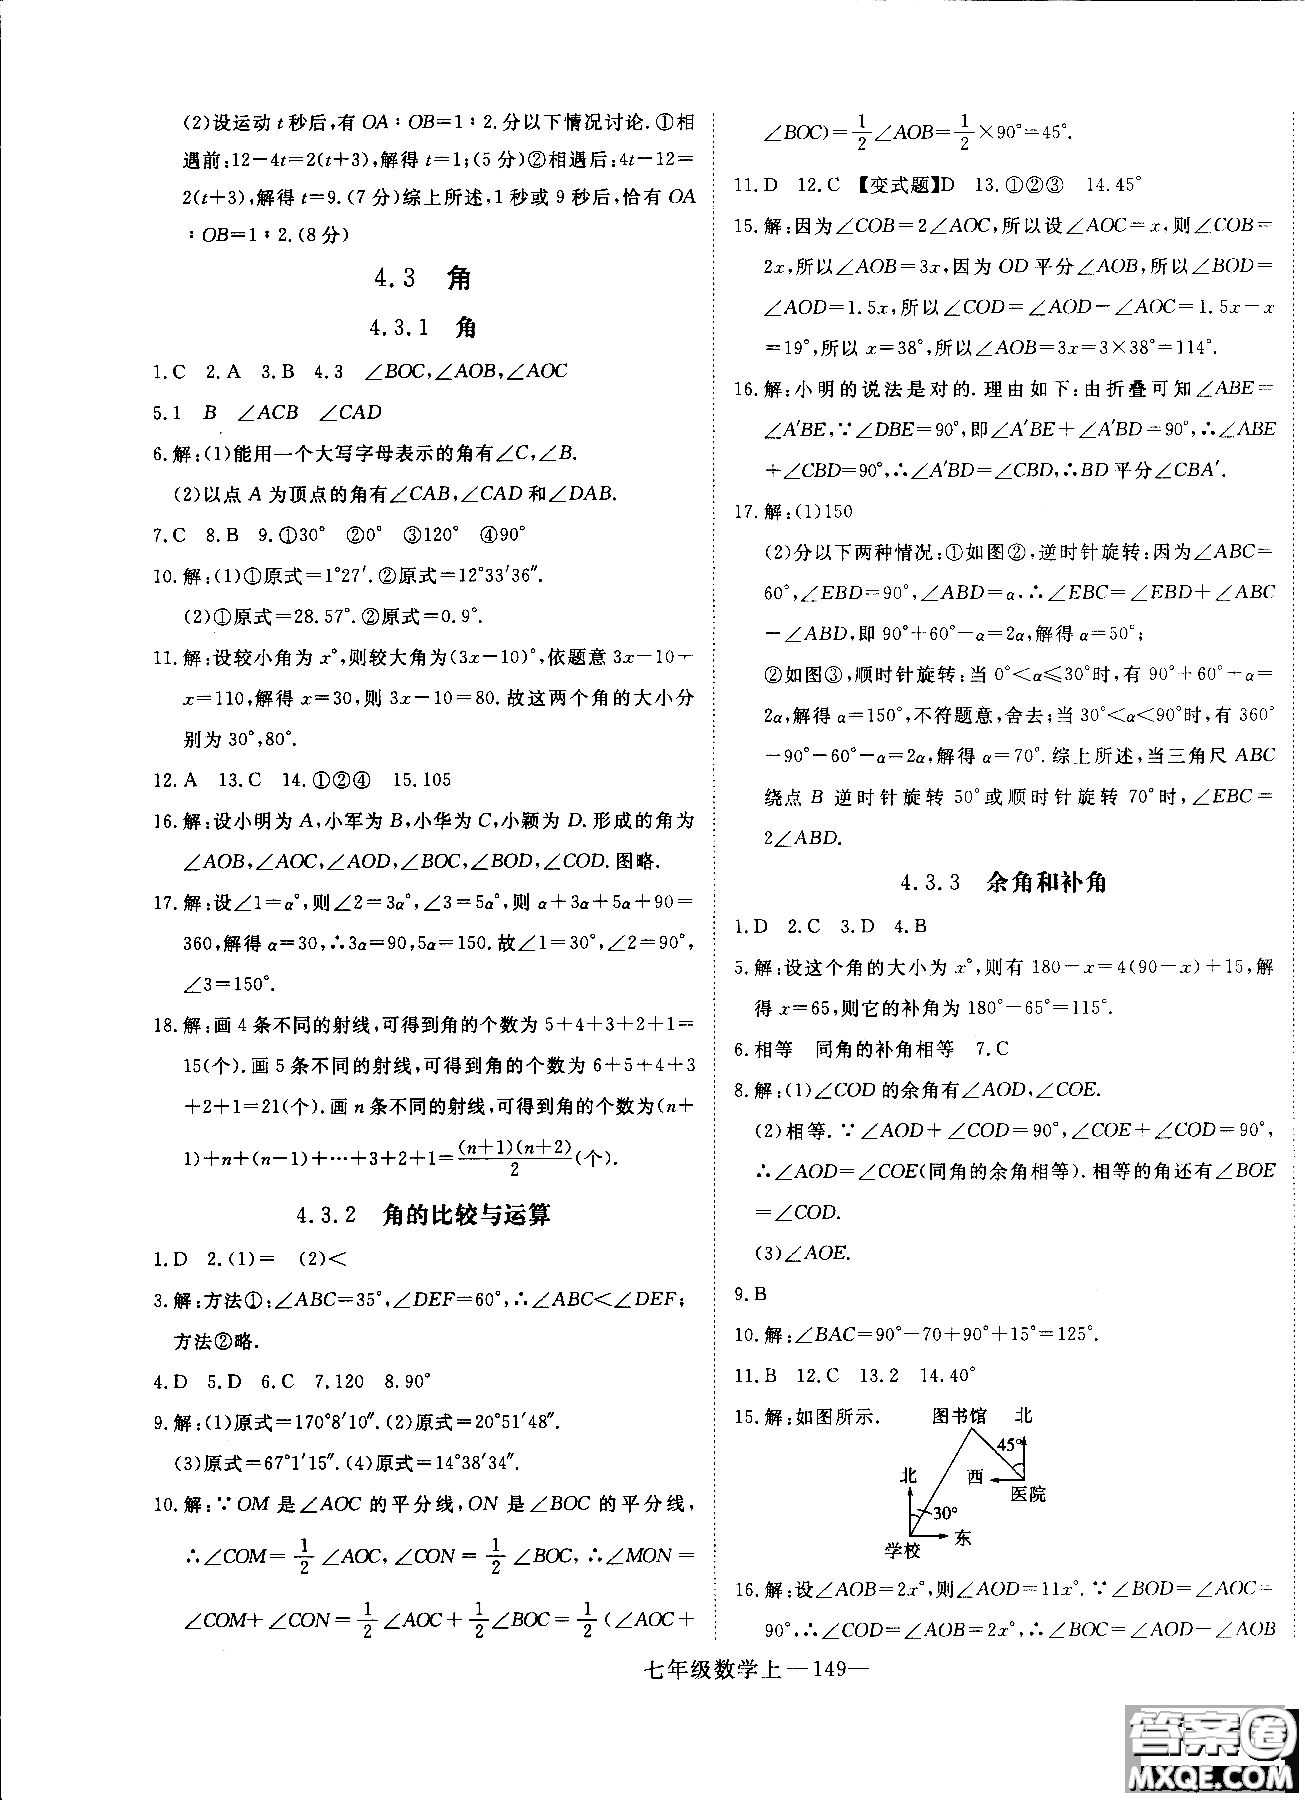 (2)设运动 t 秒后,有 OA∶OB=1∶2.分以下情况讨论.①相
遇前:12-4t=2(t+3),解得 t=1;(5 分)②相遇后:4t-12=
2(t+3),解得 t=9.(7 分)综上所述,1 秒或 9 秒后,恰有 OA
∶OB=1∶2.(8 分)
4.3 角
4.3.1 角
1.C 2.A 3.B 4.3 ∠BOC,∠AOB,∠AOC
5.1 B ∠ACB ∠CAD
6.解:(1)能用一个大写字母表示的角有∠C,∠B.
(2)以点 A 为顶点的角有∠CAB,∠CAD 和∠DAB.
7.C 8.B 9.①30° ②0° ③120° ④90°
10.解:(1)①原式=1°27′.②原式=12°33′36″.
(2)①原式=28.57°.②原式=0.9°.
11.解:设较小角为 x°,则较大角为(3x-10)°,依题意 3x-10-
x=110,解得 x=30,则 3x-10=80.故这两个角的大小分
别为 30°,80°.
12.A 13.C 14.①②④ 15.105
16.解:设小明为 A,小军为 B,小华为 C,小颖为 D.形成的角为
∠AOB,∠AOC,∠AOD,∠BOC,∠BOD,∠COD.图略.
17.解:设∠1=α°,则∠2=3α°,∠3=5α°,则 α+3α+5α+90=
360,解得 α=30,∴3α=90,5α=150.故∠1=30°,∠2=90°,
∠3=150°.
18.解:画 4 条不同的射线,可得到角的个数为 5+4+3+2+1=
15(个).画 5 条不同的射线,可得到角的个数为 6+5+4+3
+2+1=21(个).画 n 条不同的射线,可得到角的个数为(n+
1)+n+(n-1)+…+3+2+1=(n+1)(n+2)/2(个).
4.3.2 角的比较与运算
1.D 2.(1)= (2)<
3.解:方法①:∠ABC=35°,∠DEF=60°,∴∠ABC<∠DEF;
方法②略.
4.D 5.D 6.C 7.120 8.90°
9.解:(1)原式=170°8′10″.(2)原式=20°51′48″.
(3)原式=67°1′15″.(4)原式=14°38′34″.
10.解:∵OM 是∠AOC 的平分线,ON 是∠BOC 的平分线,
∴∠COM=1/2∠AOC,∠CON=1/2∠BOC,∴∠MON=
∠COM+∠CON=1/2∠AOC+1/2∠BOC=1/2(∠AOC+
∠BOC)=1/2∠AOB=1/2×90°=45°.
11.D 12.C 【变式题】D 13.①②③ 14.45°
15.解:因为∠COB=2∠AOC,所以设∠AOC=x,则∠COB=
2x,所以∠AOB=3x,因为 OD 平分∠AOB,所以∠BOD=
∠AOD=1.5x,所以∠COD=∠AOD-∠AOC=1.5x-x
=19°,所以 x=38°,所以∠AOB=3x=3×38°=114°.
16.解:小明的说法是对的.理由如下:由折叠可知∠ABE=
∠A′BE,∵∠DBE=90°,即∠A′BE+∠A′BD=90°,∴∠ABE
+∠CBD=90°,∴∠A′BD=∠CBD,∴BD 平分∠CBA′.
17.解:(1)150
(2)分以下两种情况:①如图②,逆时针旋转:因为∠ABC=
60°,∠EBD=90°,∠ABD=α,∴∠EBC=∠EBD+∠ABC
-∠ABD,即 90°+60°-α=2α,解得 α=50°;
②如图③,顺时针旋转:当 0°<α≤30°时,有 90°+60°+α=
2α,解得 α=150°,不符题意,舍去;当 30°<α<90°时,有 360°
-90°-60°-α=2α,解得 α=70°.综上所述,当三角尺 ABC
绕点 B 逆时针旋转 50°或顺时针旋转 70°时,∠EBC=
2∠ABD.
4.3.3 余角和补角
1.D 2.C 3.D 4.B
5.解:设这个角的大小为 x°,则有 180-x=4(90-x)+15,解
得 x=65,则它的补角为 180°-65°=115°.
6.相等 同角的补角相等 7.C
8.解:(1)∠COD 的余角有∠AOD,∠COE.
(2)相等.∵∠AOD+∠COD=90°,∠COE+∠COD=90°,
∴∠AOD=∠COE(同角的余角相等).相等的角还有∠BOE
=∠COD.
(3)∠AOE.
9.B
10.解:∠BAC=90°-70+90°+15°=125°.
11.B 12.C 13.2 14.40°
15.解:如图所示.
图书馆 北
45°
北 西
医院
30°
东
学校
16.解:设∠AOB=2x°,则∠AOD=11x°.∵∠BOD=∠AOC=
90°,∴∠COD=∠AOB=2x°,∴∠BOC=∠AOD-∠AOB
七年级数学上—149—
答案圈
MXQE.COM